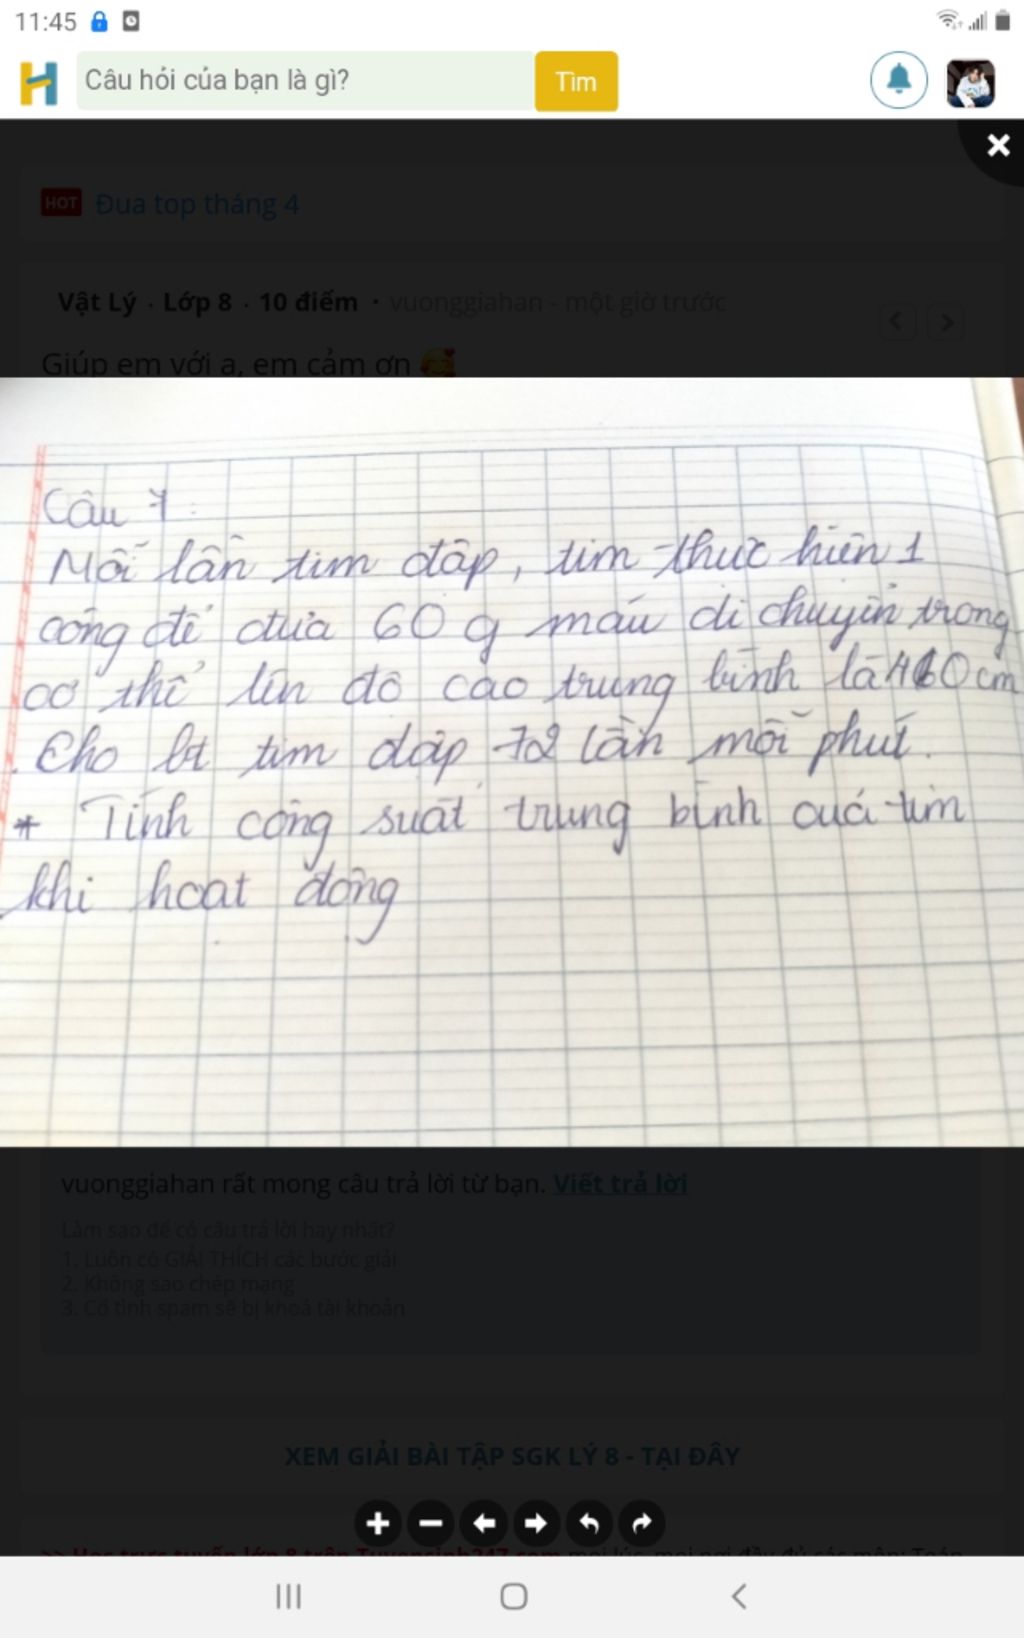 11:45
Câu hỏi của bạn là gì?
Tìm
HOT Đua top tháng 4
Vật Lý · Lớp 8 · 10 điểm · vuonggiahan - một giờ trước
Giúp em với ạ, em cảm ơn
Câu 7:
Mỗi lần tim đập, tim thực hiện 1
công để đưa 60 g máu di chuyển trong
cơ thể lên độ cao trung bình là cm
Cho bt tim đập 72 lần mỗi phút.
* Tính công suất trung bình của tim
khi hoạt động
vuonggiahan rất mong câu trả lời từ bạn. Viết trả lời
Làm sao để có câu trả lời hay nhất?
1. Luôn có GIẢI THÍCH các bước giải
2. Không sao chép mạng
3. Cố tình spam sẽ bị khoá tài khoản
XEM GIẢI BÀI TẬP SGK LÝ 8 - TẠI ĐÂY
>> Học trực tuyến lớp 8 trên Tuyensinh247.com mọi lúc, mọi nơi đầy đủ các môn: Toán